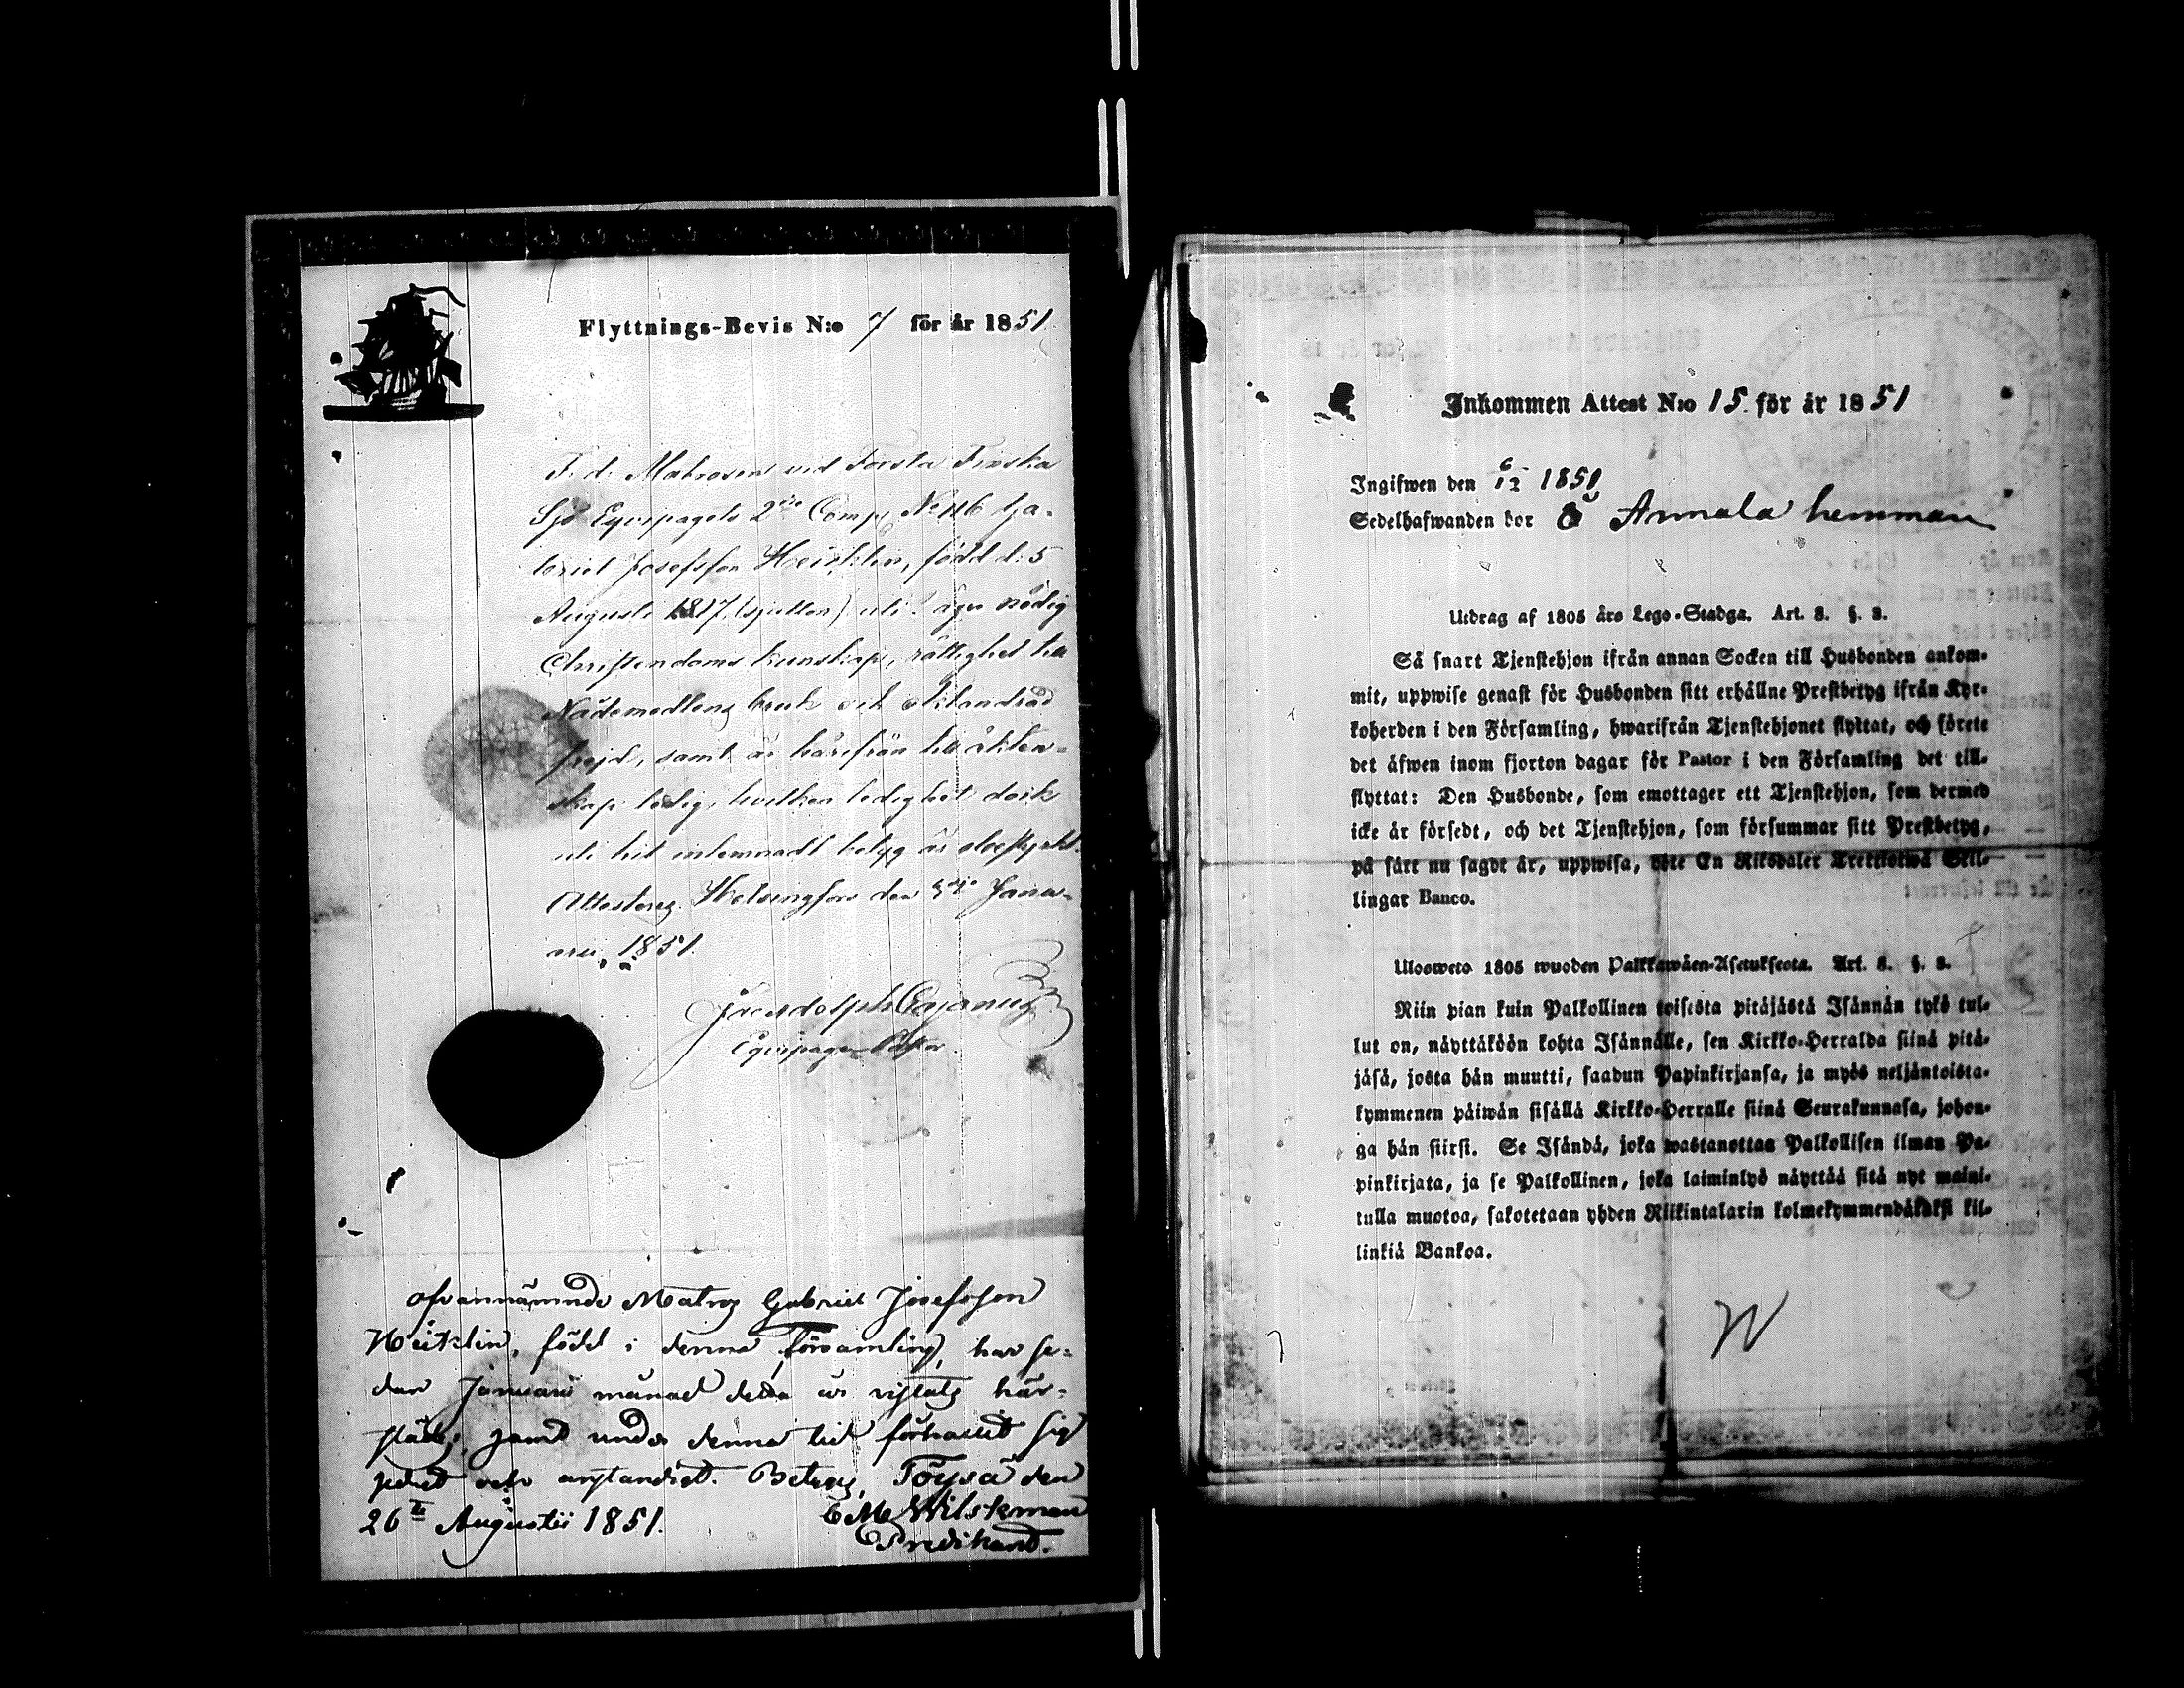 Flyttnings-Bevis N:o 7 för år 1851.
F. d. Matrosen vid Första Finska
Sjö Equipagets 2dra Comp. No 116 Ga-
briel Josefsson Heiklin, född d. 5
Augusti 1817, (sjutton) uti eger nödig
Christendoms kunskap, rättighet till
Nådemedlens bruk och oklandrad
frejd, samt är härifrån till äkten-
skap ledig, hvilken ledighet dock
uti hit inlemnadt betyg är
Attesterar. Helsingfors den Janu-
arii 1851.
Frendolph Cajanus
Equipage Pastor
Ofvannämnde Matros Gabriel Josefsson
Heiklin, född i denna församling, har se-
dan Januari månad detta år vistats här-
städes, samt under denna tid förhållit sig
och anständigt. Betygar, Töysä den
26te Augustii 1851.
C M Wilskman
Predikant.
Inkommen Attest N:o 15. för år 1851
Ingifwen den 6/12 1851
Sedelhafwanden bor å Annala hemman
Utdrag af 1805 års Lego-Stadga. Art. 8. §. 8.
Så snart Tjenstehjon ifrån annan Socken till Husbonden ankom-
mit, uppwise genast för Husbonden sitt erhållne Prestbetyg ifrån Kyr-
koherden i den Församling, hwarifrån Tjenstehjonet flyttat, och förete
det äfwen inom fjorton dagar för Pastor i den Församling det till-
flyttat: Den Husbonde, som emottager ett Tjenstehjon, som dermed
icke är försedt, och det Tjenstehjon, som försummar sitt Prestbetyg,
på sätt nu sagdt är, uppwisa, böte En Riksdaler Trettiotwå Skil-
lingar Banco.
Ulosweto 1805 wuoden Palkkawäen-Asetuksesta. Art. 8. §. 8.
Niin pian kuin Palkollinen toisesta pitäjästä Isännän tykö tul-
lut on, näyttäköön kohta Isännälle, sen Kirkko-Herralda siinä pitä-
jäsä, josta hän muutti, saadun Papinkirjansa, ja myös neljäntoista-
kymmenen päiwän sisällä Kirkko-Herralle siinä Seurakunnasa, johon-
ga hän siirsi. Se Isändä, joka wastanottaa Palkollisen ilman Pa-
pinkirjata, ja se Palkollinen, joka laiminlyö näyttää sitä nyt maini-
tulla muotoa, sakotetaan yhden Riikintalarin kolmekymmendäkaksi kil-
linkiä Bankoa.
W